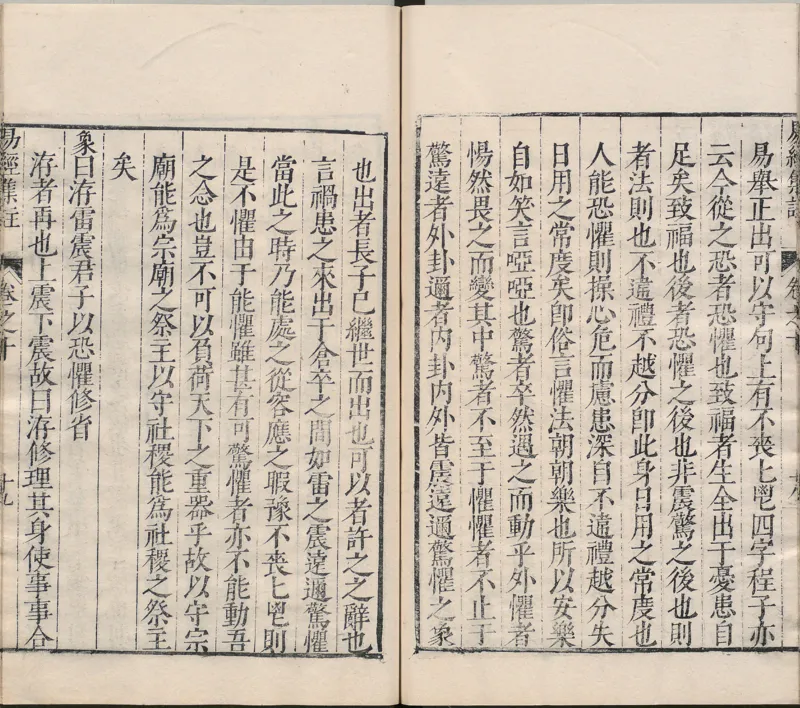 易舉正出可以守句上有不喪匕鬯四字程子亦
云今從之恐者恐懼也致福者生全出于憂患自
足矣致福也後者恐懼之後也非震驚之後也則
者法則也不違禮不越分卽此身日用之常度也
人能恐懼則操心危而慮患深自不違禮越分失
日用之常度矣卽俗言懼法朝朝樂也所以安樂
自如笑言啞啞也驚者卒然遇之而動乎外懼者
惕然畏之而變其中驚者不至于懼懼者不止于
驚遠者外卦邇者內卦內外皆震遠邇驚懼之象
也出者長子已繼世而出也可以者許之之辭也
言禍患之來出于倉卒之間如雷之震遠邇驚懼
當此之時乃能處之從容應之暇豫不喪匕鬯則
是不懼由于能懼雖甚有可驚懼者亦不能動吾
之念也豈不可以負荷天下之重器乎故以守宗
廟能爲宗廟之祭主以守社稷能爲社稷之祭主
矣
象曰洊雷震君子以恐懼修省
洊者再也上震下震故曰洊修理其身使事事合
易經集註
卷之十
十九